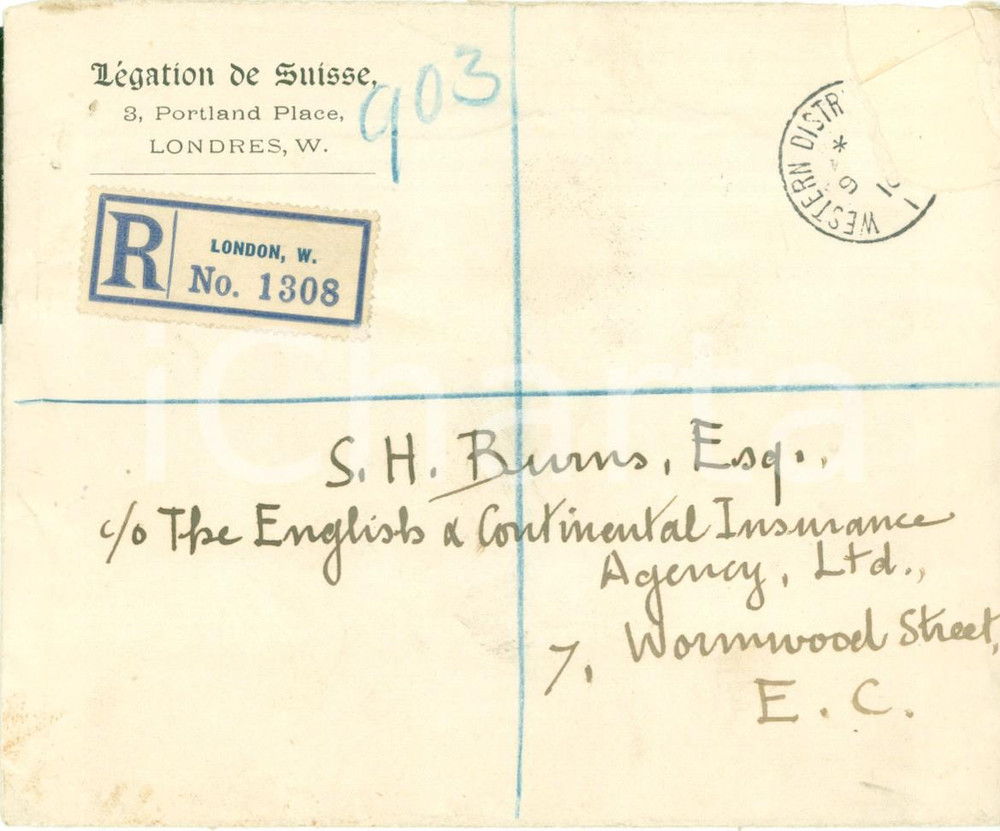 Légation de Suisse,
3, Portland Place,
LONDRES, W.
903
R
LONDON, W.
No. 1308
WESTERN DISTR
* 9
iCharta
S. H. Burns, Esq.,
c/o The English & Continental Insurance
Agency, Ltd.,
7, Wormwood Street,
E. C.